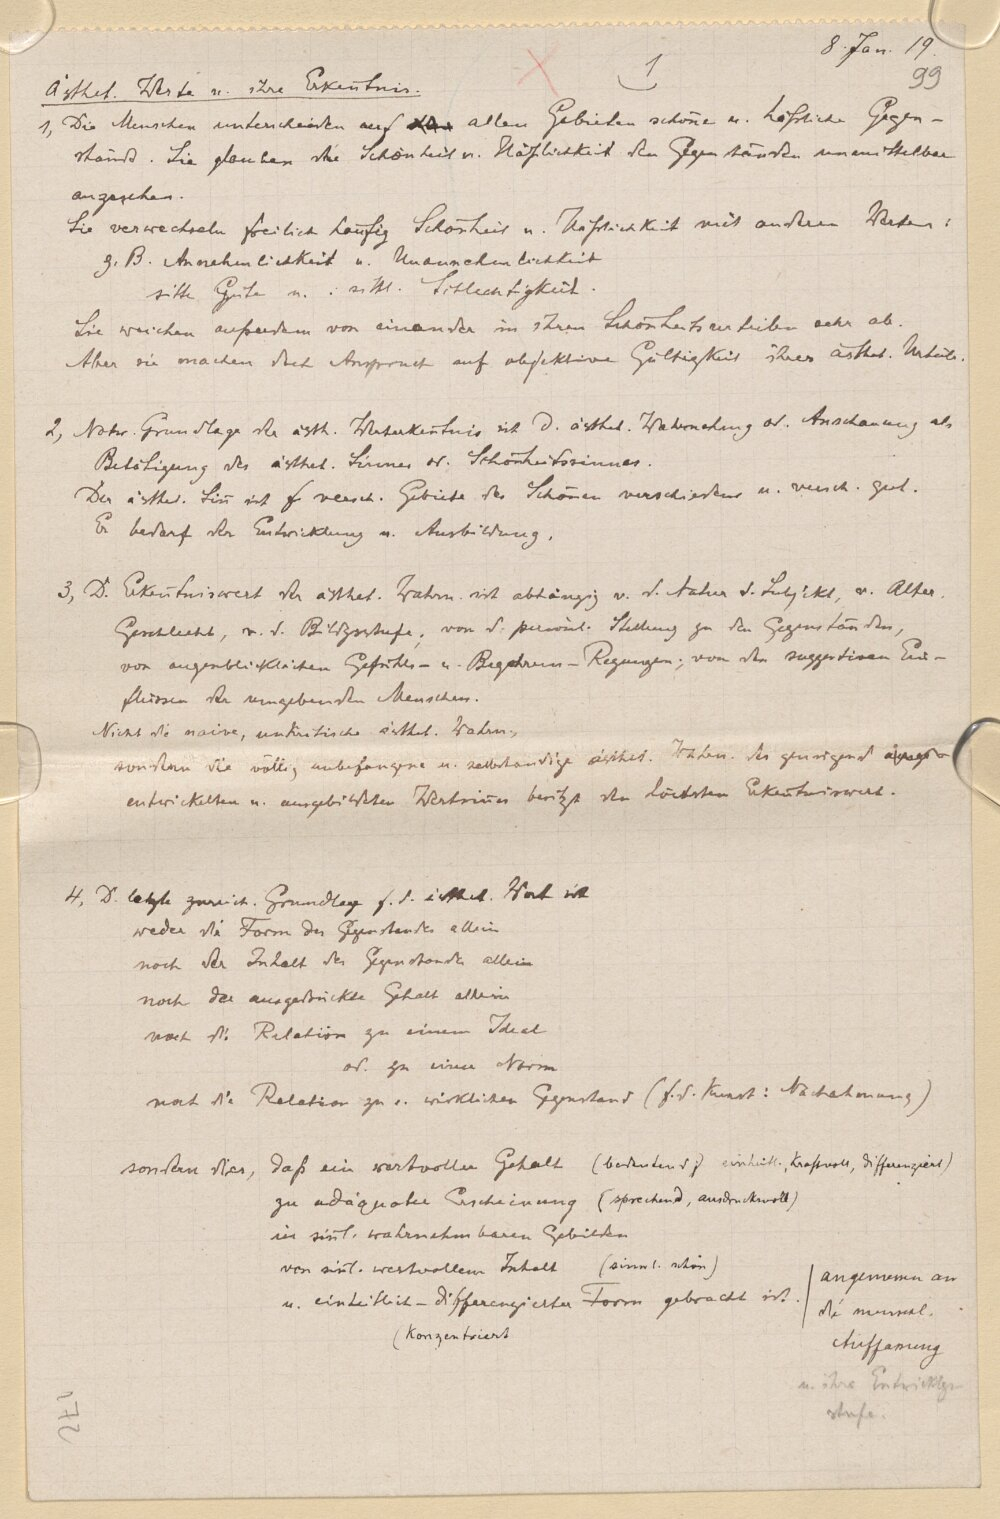 8. Jan. 19.
1
99
Ästhet. Werte u. ihre Erkentnis.
1, Die Menschen unterscheiden auf allen Gebieten schöne u. häßliche Gegen-
stände. Sie glauben die Schönheit u. Häßlichkeit den Gegenständen unmittelbar
anzusehen.
Sie verwechseln freilich häufig Schönheit u. Häßlichkeit mit anderen Werten:
z. B. Annehmlichkeit u. Unannehmlichkeit
sittl. Güte u. sittl. Schlechtigkeit.
Sie weichen außerdem von einander in ihren Schönheitsurteilen sehr ab.
Aber sie machen doch Anspruch auf objektive Gültigkeit ihrer ästhet. Urteile.
2, Notw. Grundlage der ästh. Werterkentnis ist d. ästhet. Wahrnehmung od. Anschauung als
Betätigung des ästhet. Sinnes od. Schönheitssinnes.
Der ästhet. Sin ist f versch. Gebiete des Schönen verschieden u. versch. gut.
Er bedarf der Entwicklung u. Ausbildung.
3, D. Erkentniswert der ästhet. Wahrn. ist abhängig v. d. Natur d. Subjekt, v. Alter,
Geschlecht, v. d. Bildgsstufe, von d. persönl. Stellung zu den Gegenständen,
von augenblicklichen Gefühls- u. Begehrens-Regungen; von den suggestiven Ein-
flüssen der umgebenden Menschen.
Nicht die naive, unkritische ästhet. Wahrn.,
sondern die völlig unbefangene u. selbständige ästhet. Wahrn. des genügend
entwickelten u. ausgebildeten Wertsines besitzt den höchsten Erkentniswert.
4, D. letzte zureich. Grundlage f. d. ästhet. Wert ist
weder die Form des Gegenstandes allein
noch der Inhalt des Gegenstandes allein
noch der ausgedrückte Gehalt allein
noch die Relation zu einem Ideal
od. zu einer Norm
noch die Relation zu e. wirklichen Gegenstand (f. d. Kunst: Nachahmung)
sondern dies, daß ein wertvoller Gehalt (bedeutend, einheitl., kraftvoll, differenziert)
zu adäquater Erscheinung (sprechend, ausdrucksvoll)
in sinl. wahrnehmbaren Gebilden
von sinl. wertvollem Inhalt (sinnl. schön)
u. einheitlich-differenzierter Form gebracht ist.
(konzentriert
angemessen an
die menschl.
Auffassung
u. ihre Entwicklgs
stufe.